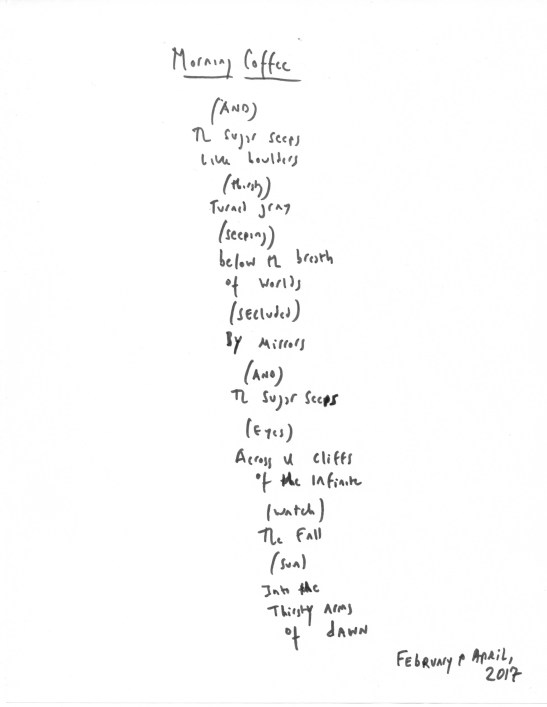 Morning Coffee
(AND)
The sugar seeps
Like boulders
(thirsty)
Turned gray
(seeping)
below the breath
of worlds
(secluded)
By Mirrors
(AND)
The sugar seeps
(Eyes)
Across the cliffs
of the infinite
(watch)
The Fall
(sun)
Into the
Thirsty Arms
of dawn
February April,
2017